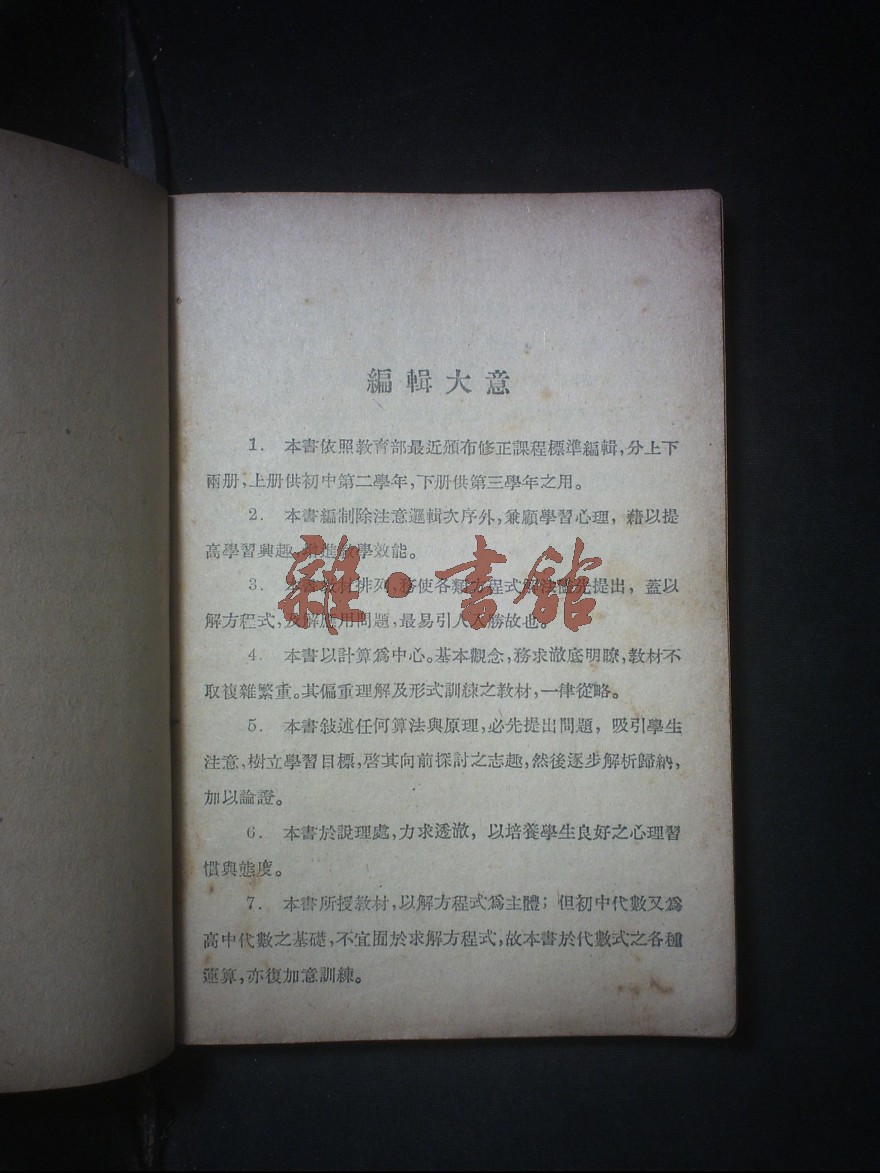 編輯大意
1. 本書依照教育部最近頒布修正課程標準編輯,分上下
兩册,上册供初中第二學年,下册供第三學年之用。
2. 本書編制除注意邏輯次序外,兼顧學習心理,藉以提
高學習興趣,增進教學效能。
3. 本書教材排列,務使各類方程式解法儘先提出,蓋以
解方程式,及解應用問題,最易引人入勝故也。
雜·書館
4. 本書以計算爲中心。基本觀念,務求澈底明瞭,教材不
取複雜繁重。其偏重理解及形式訓練之教材,一律從略。
5. 本書敍述任何算法與原理,必先提出問題,吸引學生
注意,樹立學習目標,啓其向前探討之志趣,然後逐步解析歸納,
加以論證。
6. 本書於說理處,力求透澈,以培養學生良好之心理習
慣與態度。
7. 本書所授教材,以解方程式爲主體;但初中代數又爲
高中代數之基礎,不宜囿於求解方程式,故本書於代數式之各種
運算,亦復加意訓練。